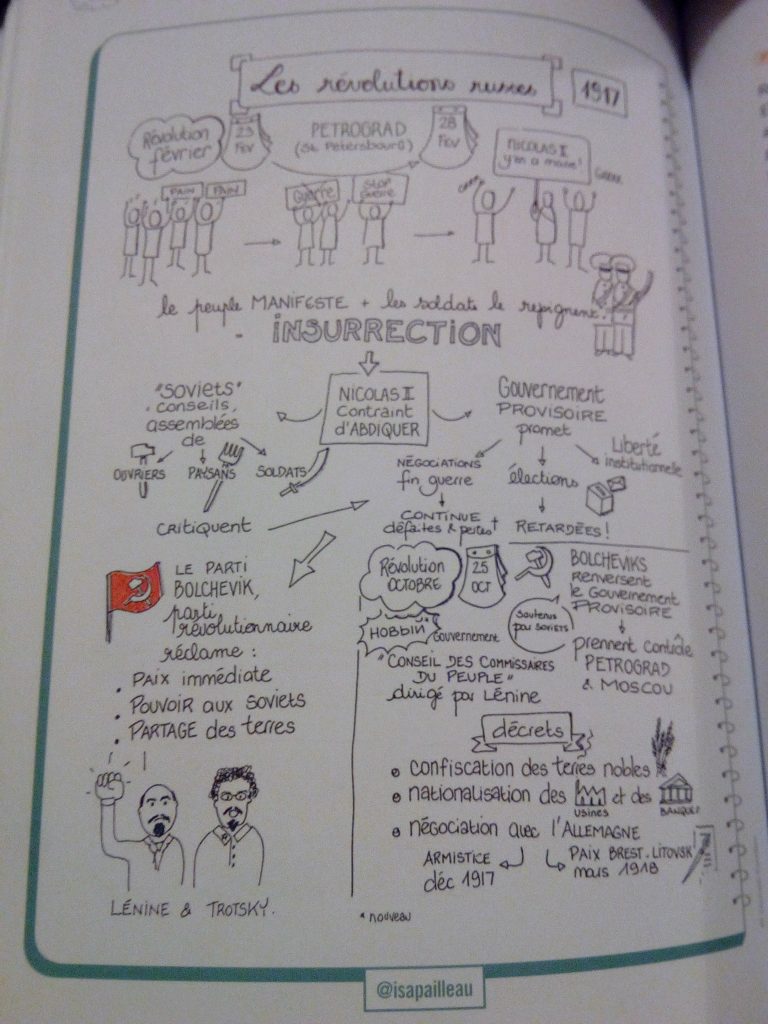 Les révolutions russes
1917
Révolution
février
23
FEV
PETROGRAD
(St Pétersbourg)
28
FEV
NICOLAS II
y'en a marre!
PAIN
PAIN
Guerre
STOP
Guerre
le peuple MANIFESTE + les soldats le rejoignent:
INSURRECTION
"SOVIETS"
conseils,
assemblées
de
OUVRIERS
PAYSANS
SOLDATS
critiquent
NICOLAS II
contraint
d'ABDIQUER
Gouvernement
PROVISOIRE
promet
NÉGOCIATIONS
fin guerre
élections
Liberté
institutionnelle
CONTINUE
défaites & pertes
RETARDÉES!
LE PARTI
BOLCHEVIK,
parti
révolutionnaire
réclame :
• PAIX immédiate
• POUVOIR aux SOVIETS
• PARTAGE des terres
LÉNINE & TROTSKY.
Révolution
OCTOBRE
25
OCT
BOLCHEVIKS
renversent
le Gouvernement
PROVISOIRE
soutenus
par soviets
prennent contrôle
PETROGRAD
& MOSCOU
НОВЫЙ*
Gouvernement
"CONSEIL DES COMMISSAIRES
DU PEUPLE"
dirigé par Lénine
décrets
• confiscation des terres nobles
• nationalisation des usines et des BANQUES
• négociation avec l'ALLEMAGNE
ARMISTICE
déc 1917
PAIX BREST-LITOVSK
mars 1918
* nouveau
@isapailleau